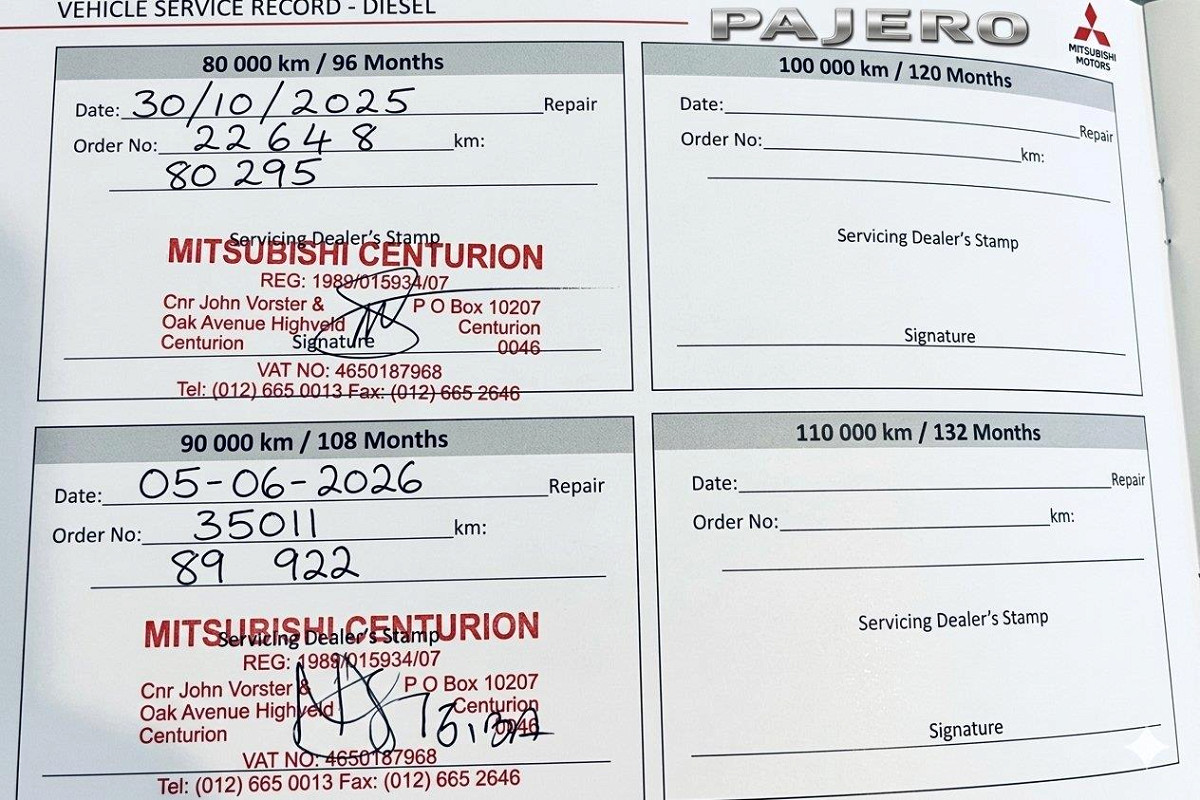 VEHICLE SERVICE RECORD - DIESEL
PAJERO
MITSUBISHI
MOTORS
80 000 km / 96 Months
Date: 30/10/2025 Repair
Order No: 22648 km:
80 295
Servicing Dealer's Stamp
MITSUBISHI CENTURION
REG: 1989/015934/07
Cnr John Vorster & P O Box 10207
Oak Avenue Highveld Centurion
Centurion 0046
Signature
VAT NO: 4650187968
Tel: (012) 665 0013 Fax: (012) 665 2646
100 000 km / 120 Months
Date: Repair
Order No: km:
Servicing Dealer's Stamp
Signature
90 000 km / 108 Months
Date: 05-06-2026 Repair
Order No: 35011 km:
89 922
Servicing Dealer's Stamp
MITSUBISHI CENTURION
REG: 1989/015934/07
Cnr John Vorster & P O Box 10207
Oak Avenue Highveld Centurion
Centurion 0046
VAT NO: 4650187968
Tel: (012) 665 0013 Fax: (012) 665 2646
110 000 km / 132 Months
Date: Repair
Order No: km:
Servicing Dealer's Stamp
Signature